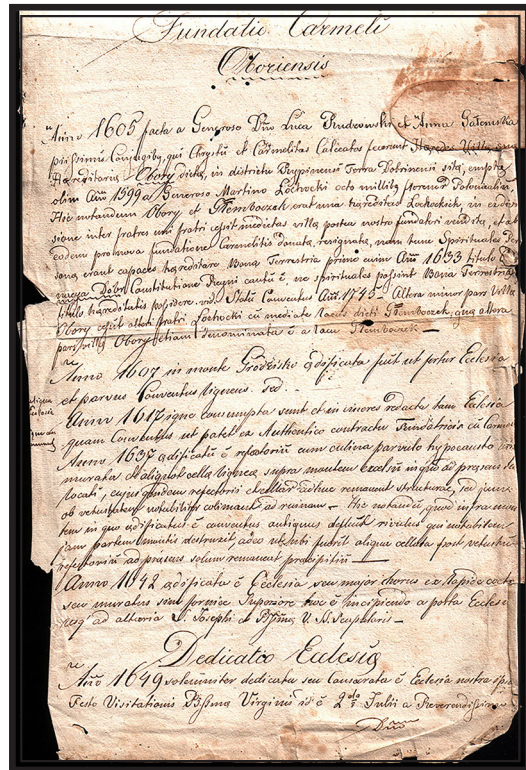 Fundatio Carmeli
Oboriensis
Anno 1605 facta a Generoso Dño Luca Rudzowski et Anna Galemska
piissimis Conjugibg, qui Chrystũ et Carmelitas Calceatos fecerunt Haeredes Villa sua
Haereditaria Obory dicta, in districtu Rypinensi Terra Dobrinensi sita, empta
olim Anõ 1599 a Generoso Martino Łochocki octo millib9 florenis Polonicalib9,
Hic notandum Obory et Stemboczek erat una haereditas Łochockich, in
sione inter fratres uni fratri cessit medietas villae postea nostro fundatori vendita, et ab
eodem pro nova fundatione Carmelitis donata, resignata, nam tum Spirituales Per
sonae erant capaces haereditare Bona Terrestria primo enim Anõ 1633 titulo
Constitutione Regni cautũ ẽ ne spirituales possint Bona Terrestria
titulo haereditatis possidere. vide Statũ Conventus Anõ 1745. Altera minor pars Villae
Obory cessit alteri fratri Łochocki cũ medietate lacus dicti Stemboczek, qua altera
pars villae Obory etiam denominata ẽ a lacu Stemboczek
Anno 1607 in monte Grodzisko aedificata fuit ut fertur Ecclesia
et parvus Conventus ligneus. sed
Anno 1617 igne consumpta sunt et in cineres redacta tam Ecclesia
quam Conventus ut patet ex Authentico contractu Fundatricis cũ
Anno 1637 aedificatũ ẽ refectoriũ cum culina parvulo hypocausto
murata et aliquot cella lignea supra montem in quo ad praesens
locati, cujus quidem refectorii et adhuc remanent structurae, sed jam
ob vetustatem notabiliter ad ruinam. Hic notandũ, quod infra mon
tem in quo aedificatus ẽ conventus antiquus defluit rivulus qui notabilem
jam partem montis destruxit, adeo ut ubi fuerit aliqua cellula post
refectorium ad praesens solum remanet praecipitiũ
Anno 1642 aedificata ẽ Ecclesia seu major chorus ex lapide cocto
seu muratus sine fornice Superiore hoc ẽ incipiendo a porta Ecclesiae
usq9 ad altaria S. Josephi et Bssmae V. M. Scapularis
Dedicatio Ecclesiae
Año 1649 solenniter dedicata seu Consecrata ẽ Ecclesia nostra ipso
Festo Visitationis Bssmae Virginis id ẽ 2da Julii a Reverendissimo
Dño